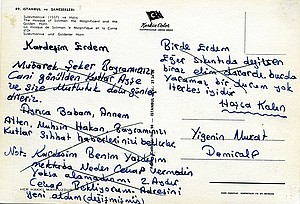 89. İSTANBUL ve SAHESERLERİ
Süleymaniye (1557) ve Haliç
The mosque of Soliman the Magnificent and the Golden Horn
La mosquée de Soliman le Magnifique et la Corne d'Or
Süleymaniye und Goldener Horn
Keskin Color
Kardeşim Erdem
Mübarek Şeker Bayramınızı
Cani gönülden Kutlar Aşte
ve Size Mutluluk dolu günler
dileriz.
Babam, Annem
Hakan Bayramınızı
Kutlar Sıhhat haberlerinizi bekler
Not: Kardeşim Benim Yazdığım
mektuba Neden Cevap Vermedin
Yoksa alamadınmı
Cevap Bekliyorum Adresini
yeni aldım (değişmiş)
Birde Erdem
Eğer Sıkıntıda değilsen
biraz elim davarda burda
Yaramaz bir durum yok
Herkes iyidir
Hoşça Kalın
Yiğenin Murat
Demiralp